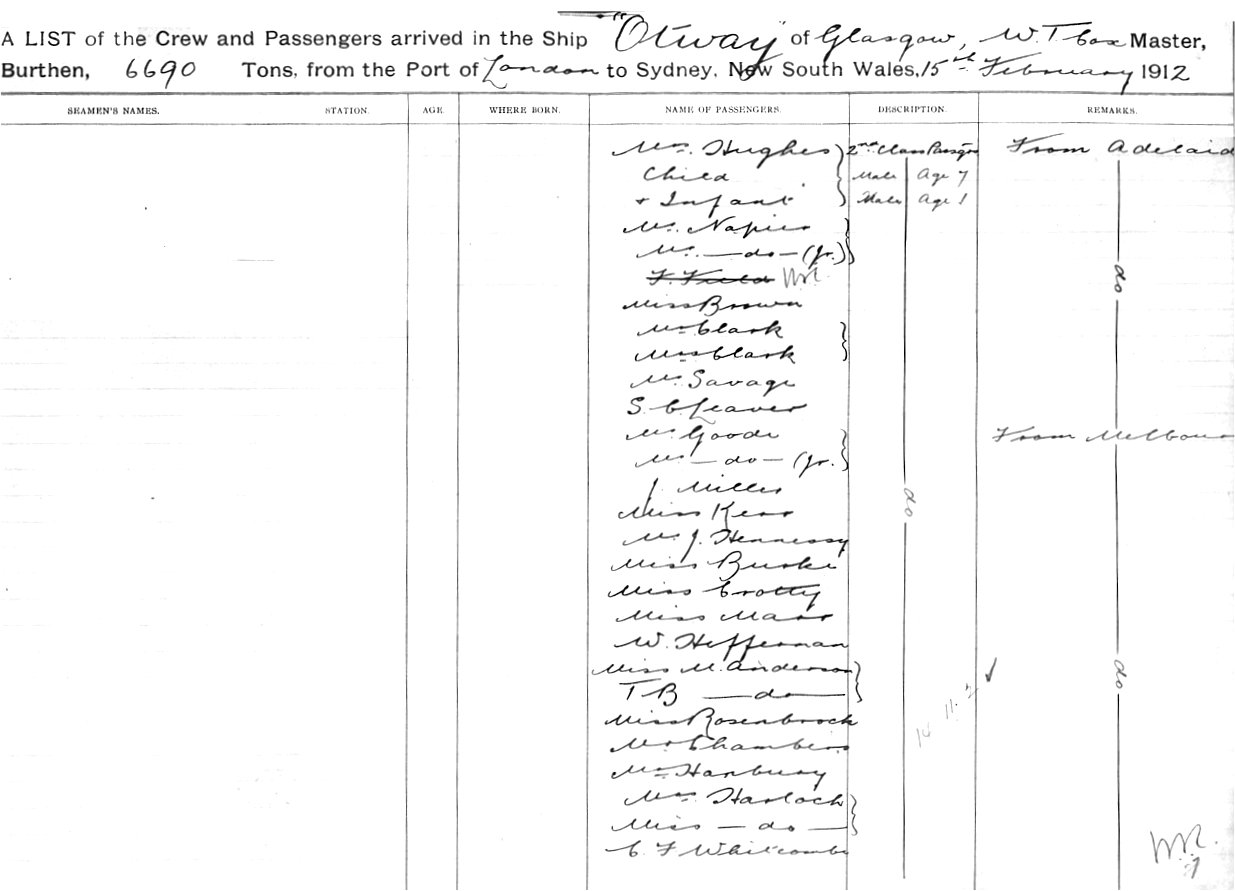 A LIST of the Crew and Passengers arrived in the Ship "Otway" of Glasgow, W. T. Cox Master,
Burthen, 6690 Tons, from the Port of London to Sydney, New South Wales, 15th February 1912
SEAMEN'S NAMES. STATION. AGE. WHERE BORN. NAME OF PASSENGERS. DESCRIPTION. REMARKS.
Mrs. Hughes 2nd Class Passgrs From Adelaid
Child Male Age 7
+ Infant Male Age 1
Mr. Napier
Mr. — do — (Jr.)
F. Field
Miss Brown do
Mr Clark
Miss Clark
Mr. Savage
S. Cleaver
Mr. Goode From Melbour
Mr — do — (Jr.)
J. Miller
Miss Kerr do
Mr. J. Hennessy
Miss Burke
Miss Crotty
Miss Marr
W. Heffernan
Miss M. Anderson do
T B — do —
Miss Rosenbrock
Mr Chambers
Hanbury
Mrs. Harloch
Miss — do —
C. F. Whitcombe